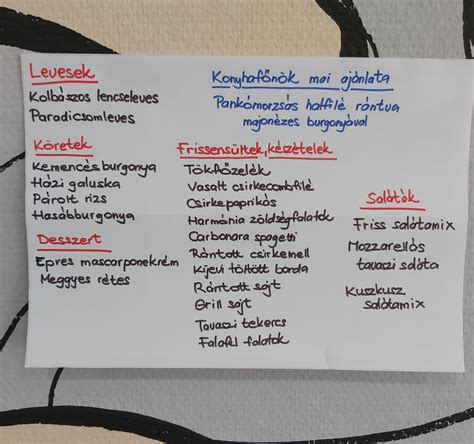 Levesek
Kolbászos lencseleves
Paradicsomleves
Köretek
Kemencés burgonya
Házi galuska
Párolt rizs
Hasábburgonya
Desszert
Epres mascarponekrém
Meggyes rétes
Konyhafőnök mai ajánlata
Pankómorzsás halfilé rántva
majonézes burgonyával
Frissensültek, készételek
Tökfőzelék
Vasalt csirkecombfilé
Csirkepaprikás
Harmónia zöldségfalatok
Carbonara spagetti
Rántott csirkemell
Kijevi töltött borda
Rántott sajt
Grill sajt
Tavaszi tekercs
Falafel falatok
Saláták
Friss salátamix
Mozzarellás
tavaszi saláta
Kuszkusz
salátamix